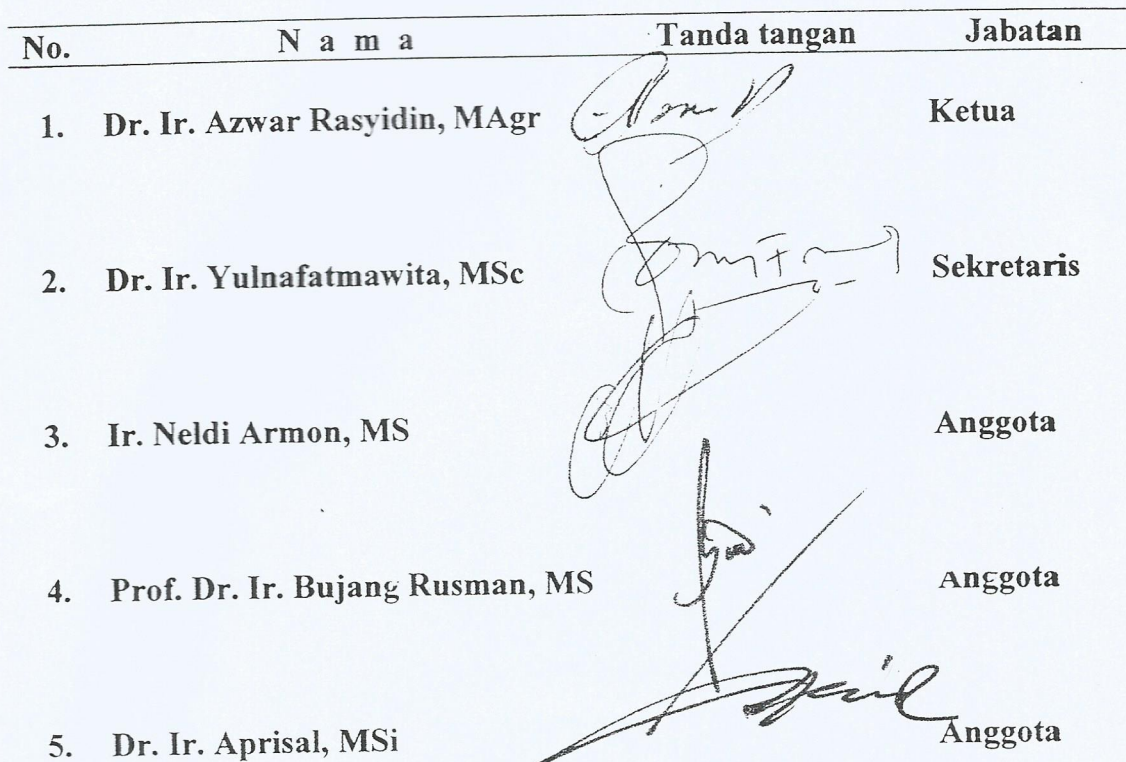 No. N a m a Tanda tangan Jabatan
1. Dr. Ir. Azwar Rasyidin, MAgr Ketua
2. Dr. Ir. Yulnafatmawita, MSc Sekretaris
3. Ir. Neldi Armon, MS Anggota
4. Prof. Dr. Ir. Bujang Rusman, MS Anggota
5. Dr. Ir. Aprisal, MSi Anggota